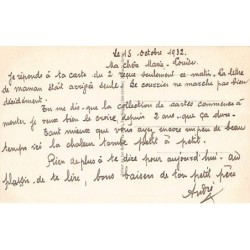 Le 15 octobre 1932.
Ma chère Marie-Louise.
Je réponds à ta carte du 2 reçue seulement ce matin. La lettre
de maman était arrivée seule. Le courrier ne marche pas bien
décidément.
Tu me dis que la collection de cartes commence à
monter je veux bien le croire depuis 2 ans que ça dure.
Tant mieux que vous ayez encore un peu de beau
temps ici la chaleur tombe petit à petit.
Rien de plus à te dire pour aujourd'hui au
plaisir de te lire, bons baisers de ton petit frère
André